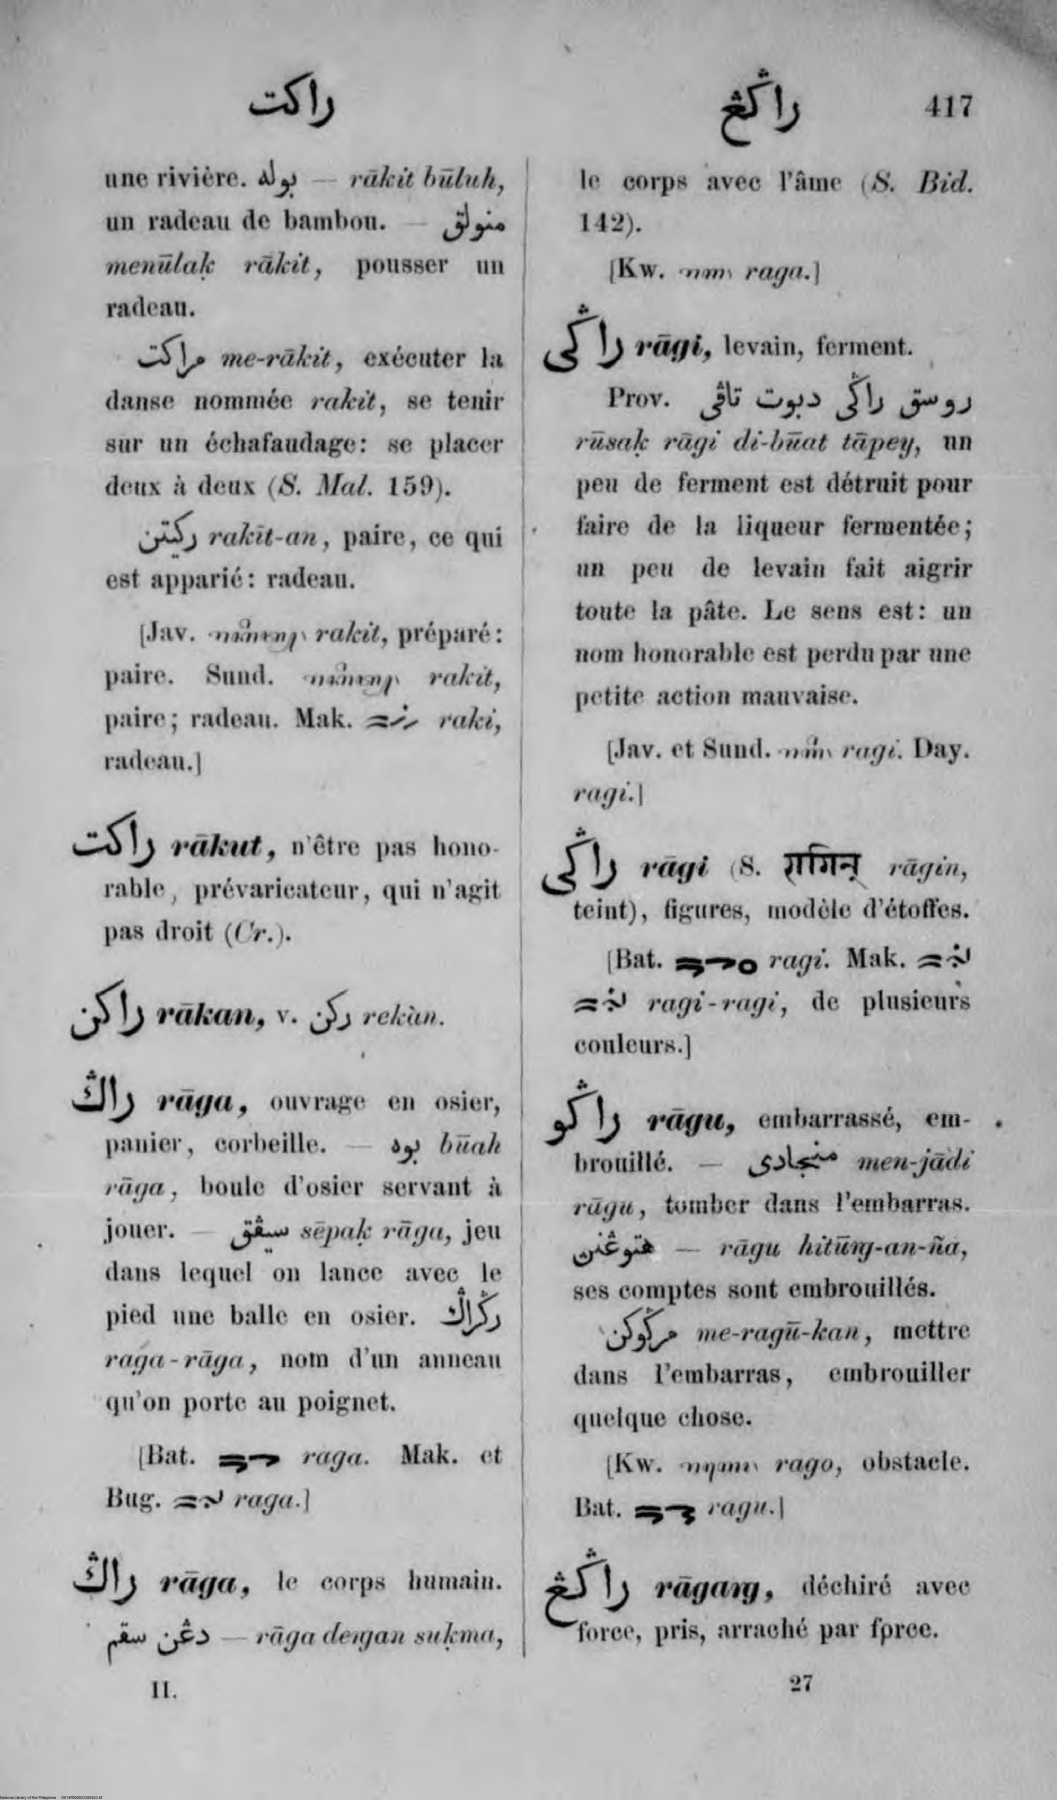 راكت
راڬڠ 417
une rivière. بوله — rākit būluh,
un radeau de bambou. — منولق
menūlaḳ rākit, pousser un
radeau.
مراكت me-rākit, exécuter la
danse nommée rakit, se tenir
sur un échafaudage: se placer
deux à deux (S. Mal. 159).
ركيتن rakīt-an, paire, ce qui
est apparié: radeau.
[Jav. rakit, préparé:
paire. Sund. rakit,
paire; radeau. Mak. raki,
radeau.]
راكت rākut, n'être pas hono-
rable, prévaricateur, qui n'agit
pas droit (Cr.).
راكن rākan, v. ركن rekàn.
راڬ rāga, ouvrage en osier,
panier, corbeille. — بوه būah
rāga, boule d'osier servant à
jouer. — سيڤق sēpaḳ rāga, jeu
dans lequel on lance avec le
pied une balle en osier. رڬراڬ
raga-rāga, nom d'un anneau
qu'on porte au poignet.
[Bat. raga. Mak. et
Bug. raga.]
راڬ rāga, le corps humain.
دڠن سقم — rāga deṅgan suḳma,
II.
le corps avec l'âme (S. Bid.
142).
[Kw. raga.]
راڬي rāgi, levain, ferment.
Prov. روسق راڬي دبوت تاڤي
rūsaḳ rāgi di-būat tāpey, un
peu de ferment est détruit pour
faire de la liqueur fermentée;
un peu de levain fait aigrir
toute la pâte. Le sens est: un
nom honorable est perdu par une
petite action mauvaise.
[Jav. et Sund. ragi. Day.
ragi.]
راڬي rāgi (S. रागिन् rāgin,
teint), figures, modèle d'étoffes.
[Bat. ragi. Mak.
ragi-ragi, de plusieurs
couleurs.]
راڬو rāgu, embarrassé, em-
brouillé. — منجادي men-jādi
rāgu, tomber dans l'embarras.
هتوڠنن — rāgu hitūng-an-ña,
ses comptes sont embrouillés.
مرڬوكن me-ragū-kan, mettre
dans l'embarras, embrouiller
quelque chose.
[Kw. rago, obstacle.
Bat. ragu.]
راڬڠ rāgang, déchiré avec
force, pris, arraché par force.
27